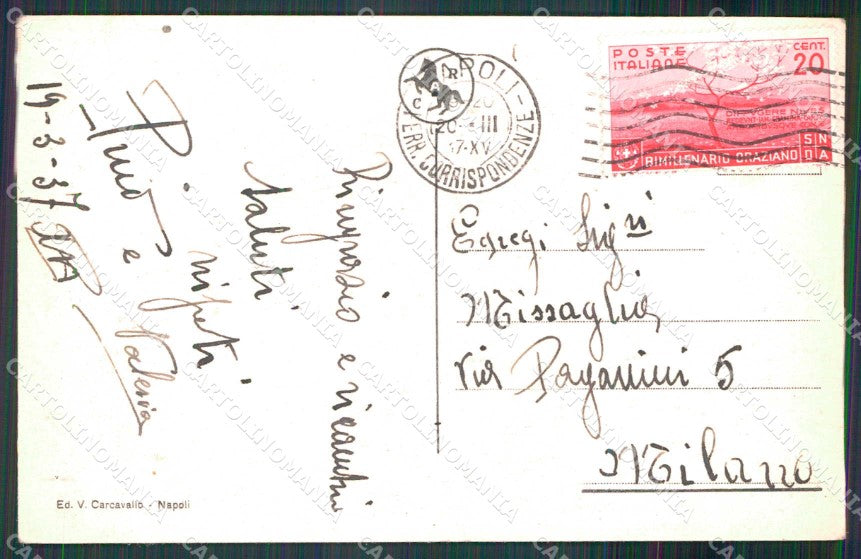 19-3-37 XV
Ringrazio e ricambio
saluti.
nipoti.
Pino e Valeria
Egregi Sig.ri
Missaglia
via Paganini 5
Milano
POSTE
ITALIANE
CENT.
20
BIMILLENARIO ORAZIANO
NAPOLI
FERR. CORRISPONDENZE
Ed. V. Carcavallo - Napoli
CARTOLINOMANIA